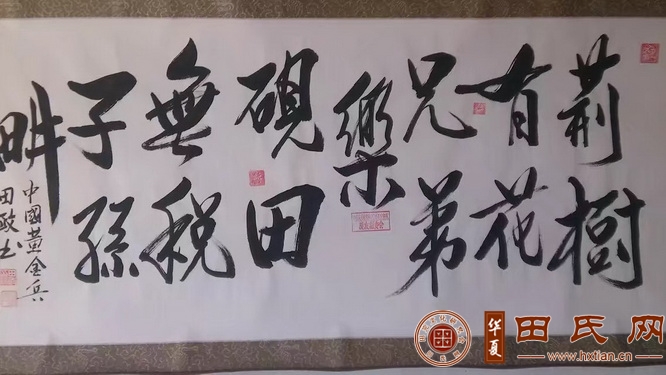 荆樹
有花
兄弟
樂
硯田
無税
子孫
畊
中國黄金兵
田政书
华夏
田氏网
www.hxtian.cn